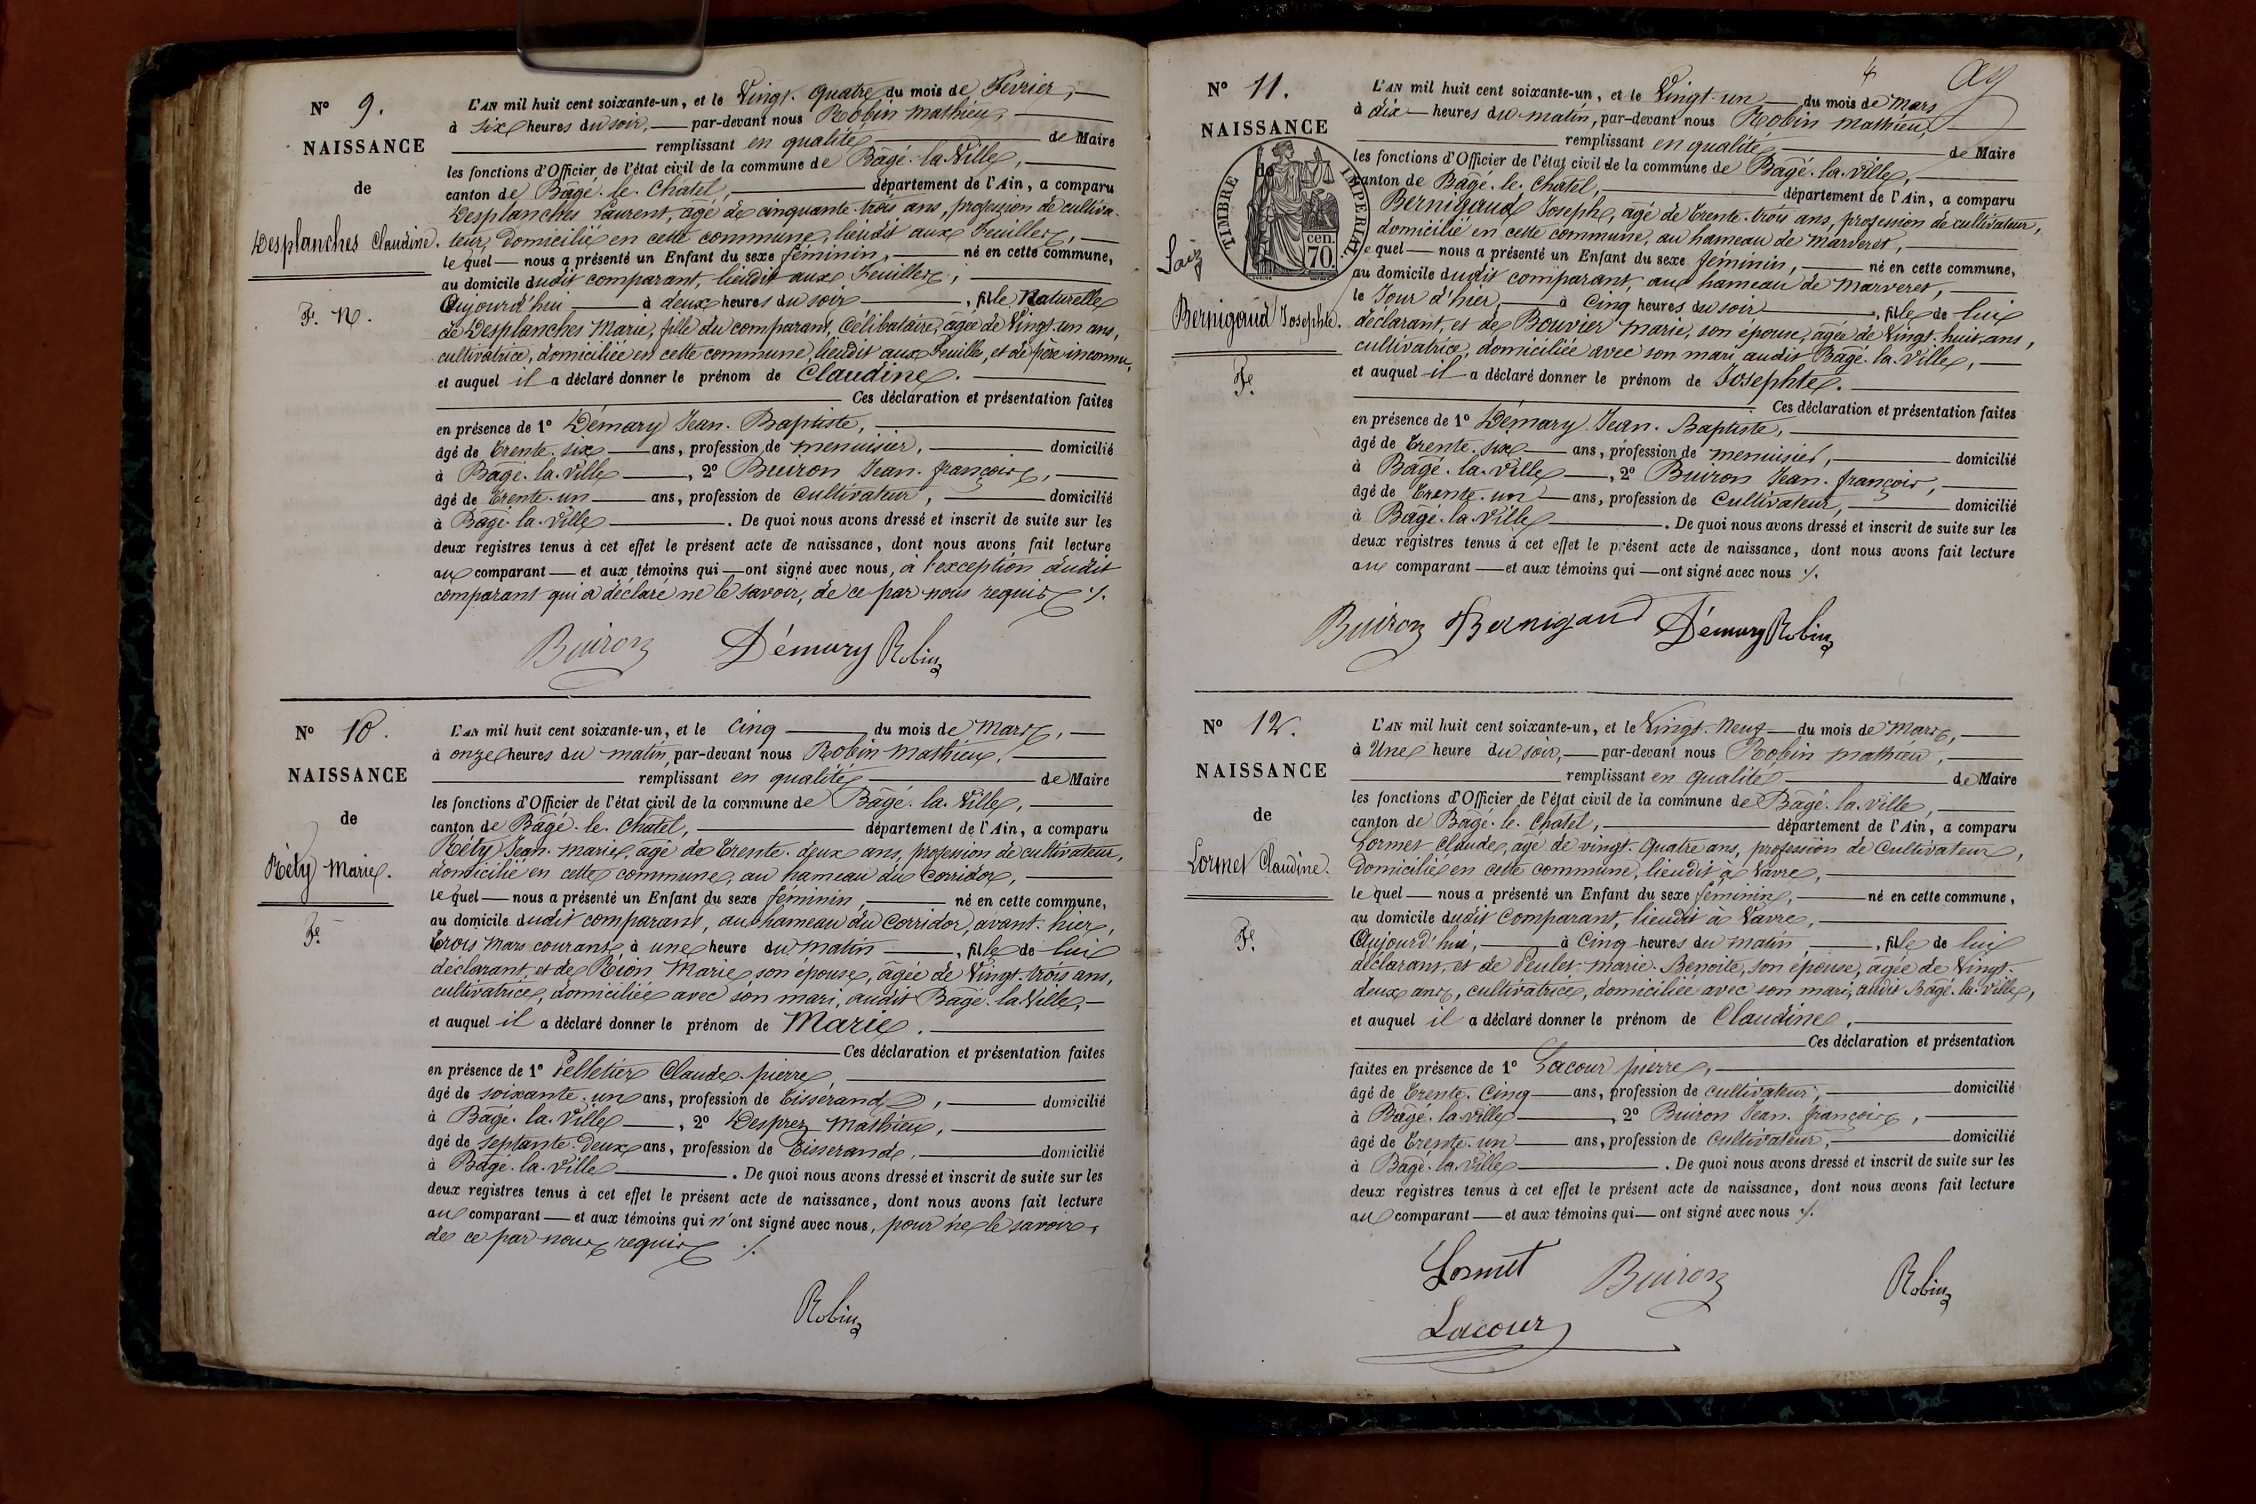 N° 9.
NAISSANCE
de
Desplanches Claudine.
F. N.
L'AN mil huit cent soixante-un, et le Vingt-quatre du mois de Février,
à six heures du soir, par-devant nous Robin Mathieu,
remplissant en qualité de Maire
les fonctions d'Officier de l'état civil de la commune de Bâgé-la-Ville,
canton de Bâgé-le-Chatel, département de l'Ain, a comparu
Desplanches Laurent, âgé de cinquante-trois ans, profession de cultiva-
teur, Domicilié en cette commune, lieudit aux Feuilles,
lequel nous a présenté un Enfant du sexe féminin, né en cette commune,
au domicile dudit comparant, lieudit aux Feuilles,
Aujourd'hui à deux heures du soir, fille Naturelle
de Desplanches Marie, fille du comparant, Célibataire, âgée de Vingt-un ans,
cultivatrice, domiciliée en cette commune, lieudit aux Feuilles, et de père inconnu,
et auquel il a déclaré donner le prénom de Claudine.
Ces déclaration et présentation faites
en présence de 1° Démary Jean-Baptiste,
âgé de trente-six ans, profession de menuisier, domicilié
à Bâgé-la-Ville, 2° Buiron Jean-françois,
âgé de trente-un ans, profession de Cultivateur, domicilié
à Bâgé-la-Ville. De quoi nous avons dressé et inscrit de suite sur les
deux registres tenus à cet effet le présent acte de naissance, dont nous avons fait lecture
au comparant et aux témoins qui ont signé avec nous, à l'exception dudit
comparant qui a déclaré ne le savoir, de ce par nous requis ./.
Buiron Démary Robin
N° 10.
NAISSANCE
de
Réty Marie.
Fe.
L'AN mil huit cent soixante-un, et le Cinq du mois de Mars,
à onze heures du matin, par-devant nous Robin Mathieu,
remplissant en qualité de Maire
les fonctions d'Officier de l'état civil de la commune de Bâgé-la-Ville,
canton de Bâgé-le-Chatel, département de l'Ain, a comparu
Réty Jean-Marie, âgé de trente-deux ans, profession de cultivateur,
domicilié en cette commune, au hameau du Corridor,
lequel nous a présenté un Enfant du sexe féminin, né en cette commune,
au domicile dudit comparant, au hameau du Corridor, avant-hier,
trois Mars courant, à une heure du matin, fille de lui
déclarant, et de Réion Marie, son épouse, âgée de Vingt-trois ans,
cultivatrice, domiciliée avec son mari, audit Bâgé-la-Ville,
et auquel il a déclaré donner le prénom de Marie.
Ces déclaration et présentation faites
en présence de 1° Pelletier Claude-pierre,
âgé de soixante-un ans, profession de tisserand, domicilié
à Bâgé-la-Ville, 2° Desprez Mathieu,
âgé de septante-deux ans, profession de tisserand, domicilié
à Bâgé-la-Ville. De quoi nous avons dressé et inscrit de suite sur les
deux registres tenus à cet effet le présent acte de naissance, dont nous avons fait lecture
au comparant et aux témoins qui n'ont signé avec nous, pour ne le savoir,
de ce par nous requis ./.
Robin
4
N° 11.
NAISSANCE
de
TIMBRE IMPERIAL
70 cen.
Bernigaud Josephte.
Fe.
L'AN mil huit cent soixante-un, et le Vingt-un du mois de Mars
à dix heures du matin, par-devant nous Robin Mathieu,
remplissant en qualité de Maire
les fonctions d'Officier de l'état civil de la commune de Bâgé-la-Ville,
canton de Bâgé-le-Chatel, département de l'Ain, a comparu
Bernigaud Joseph, âgé de trente-trois ans, profession de cultivateur,
domicilié en cette commune, au hameau de Marveret,
lequel nous a présenté un Enfant du sexe féminin, né en cette commune,
au domicile dudit comparant, au hameau de Marveret,
le Jour d'hier, à Cinq heures du soir, fille de lui
déclarant, et de Bouvier Marie, son épouse, âgée de Vingt-huit ans,
cultivatrice, domiciliée avec son mari audit Bâgé-la-Ville,
et auquel il a déclaré donner le prénom de Josephte.
Ces déclaration et présentation faites
en présence de 1° Démary Jean-Baptiste,
âgé de trente-six ans, profession de menuisier, domicilié
à Bâgé-la-Ville, 2° Buiron Jean-françois,
âgé de trente-un ans, profession de Cultivateur, domicilié
à Bâgé-la-Ville. De quoi nous avons dressé et inscrit de suite sur les
deux registres tenus à cet effet le présent acte de naissance, dont nous avons fait lecture
au comparant et aux témoins qui ont signé avec nous ./.
Buiron Bernigaud Démary Robin
N° 12.
NAISSANCE
de
Lormet Claudine.
Fe.
L'AN mil huit cent soixante-un, et le Vingt-Neuf du mois de Mars,
à Une heure du soir, par-devant nous Robin Mathieu,
remplissant en qualité de Maire
les fonctions d'Officier de l'état civil de la commune de Bâgé-la-Ville,
canton de Bâgé-le-Chatel, département de l'Ain, a comparu
Lormet Claude, âgé de vingt-quatre ans, profession de Cultivateur,
Domicilié en cette commune, lieudit à Vavre,
lequel nous a présenté un Enfant du sexe féminin, né en cette commune,
au domicile dudit Comparant, lieudit à Vavre,
Aujourd'hui, à Cinq heures du matin, fille de lui
déclarant, et de Peulet Marie-Benoite, son épouse, âgée de Vingt-
deux ans, cultivatrice, domiciliée avec son mari, audit Bâgé-la-Ville,
et auquel il a déclaré donner le prénom de Claudine.
Ces déclaration et présentation
faites en présence de 1° Lacour pierre,
âgé de trente-Cinq ans, profession de cultivateur, domicilié
à Bâgé-la-Ville, 2° Buiron Jean-françois,
âgé de trente-un ans, profession de Cultivateur, domicilié
à Bâgé-la-Ville. De quoi nous avons dressé et inscrit de suite sur les
deux registres tenus à cet effet le présent acte de naissance, dont nous avons fait lecture
au comparant et aux témoins qui ont signé avec nous ./.
Lormet Buiron Robin
Lacour